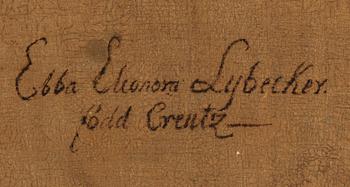 Ebba Eleonora Lybecker.
född Creutz—